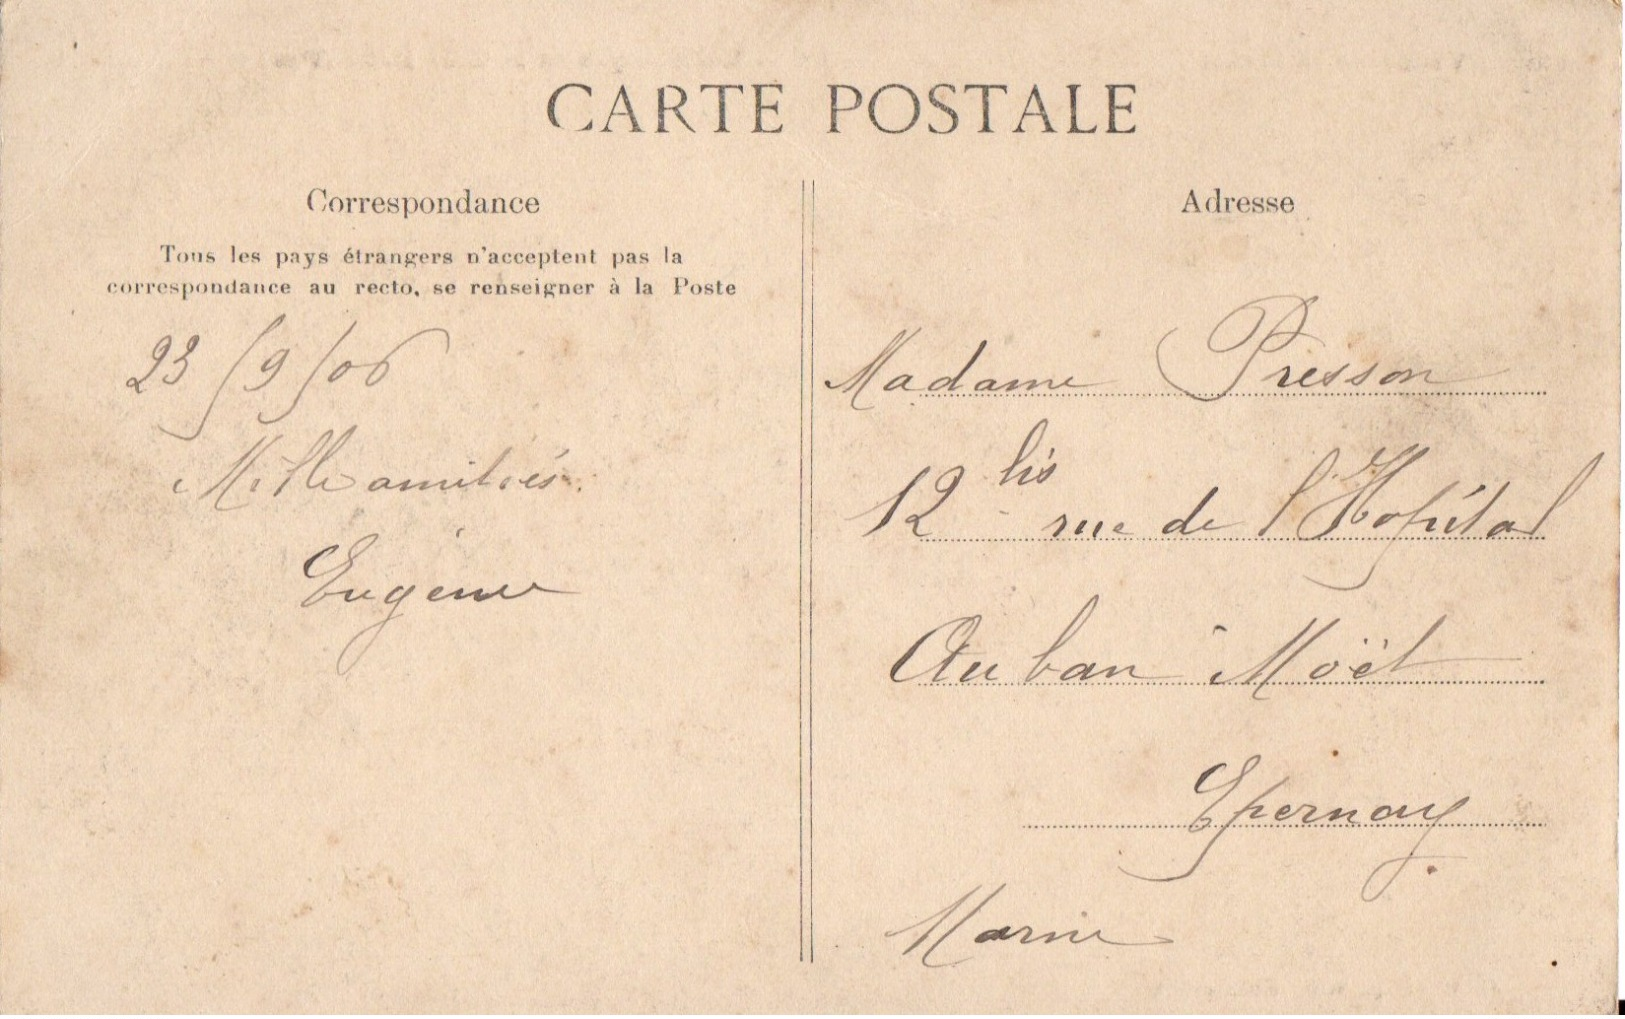 CARTE POSTALE
Correspondance
Tous les pays étrangers n'acceptent pas la
correspondance au recto, se renseigner à la Poste
23/9/06
Mille amitiés.
Eugénie
Adresse
Madame Presson
12 bis rue de l'Hopital
Au ban Moët
Epernay
Marne